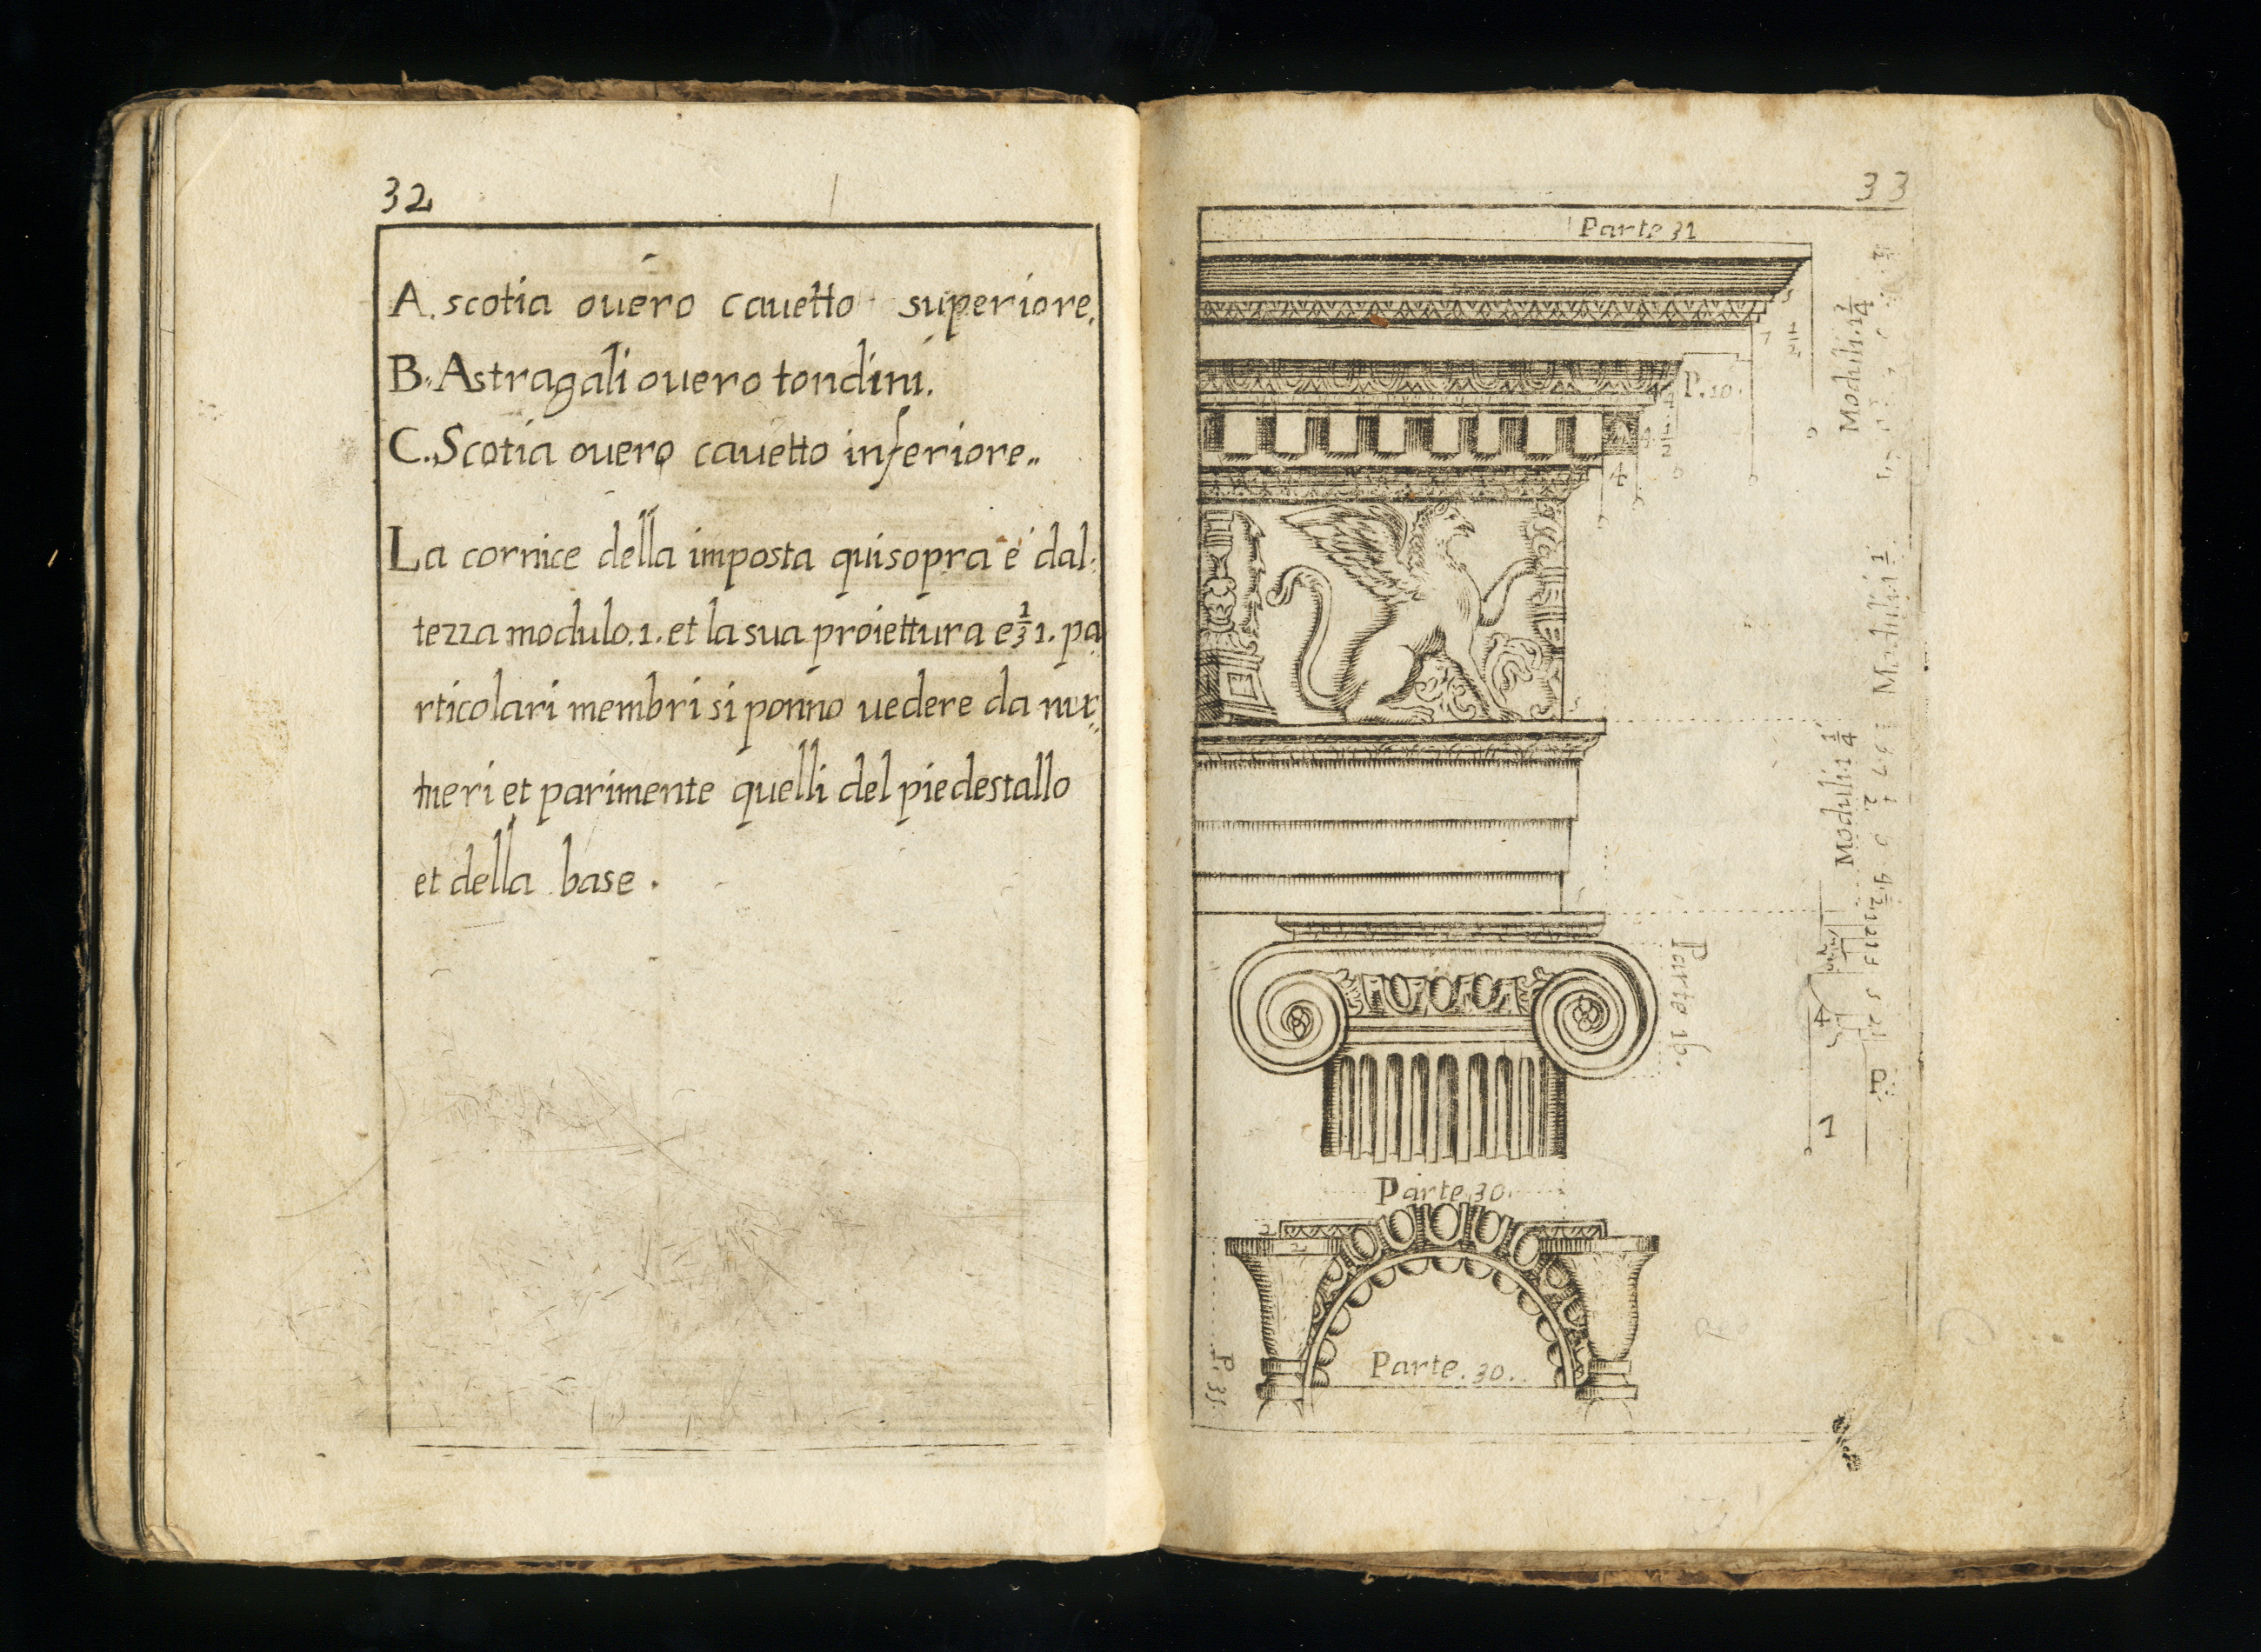 32
A. scotia ouero cauetto superiore.
B. Astragali ouero tondini.
C. Scotia ouero cauetto inferiore..
La cornice della imposta qui sopra e' dal-
tezza modulo. 1. et la sua proiettura e 1/3 1. pa-
rticolari membri si ponno uedere da nu-
meri et parimente quelli del piedestallo
et della base.
33
Parte 31
Moduli. 1 3/4
7 1/2
P. 10.
4
4 1/2
6
4
Moduli 1 1/2
Moduli. 1 1/4
Parte 16.
4
P.
1
Parte 30.
2
2
P. 35.
Parte. 30..